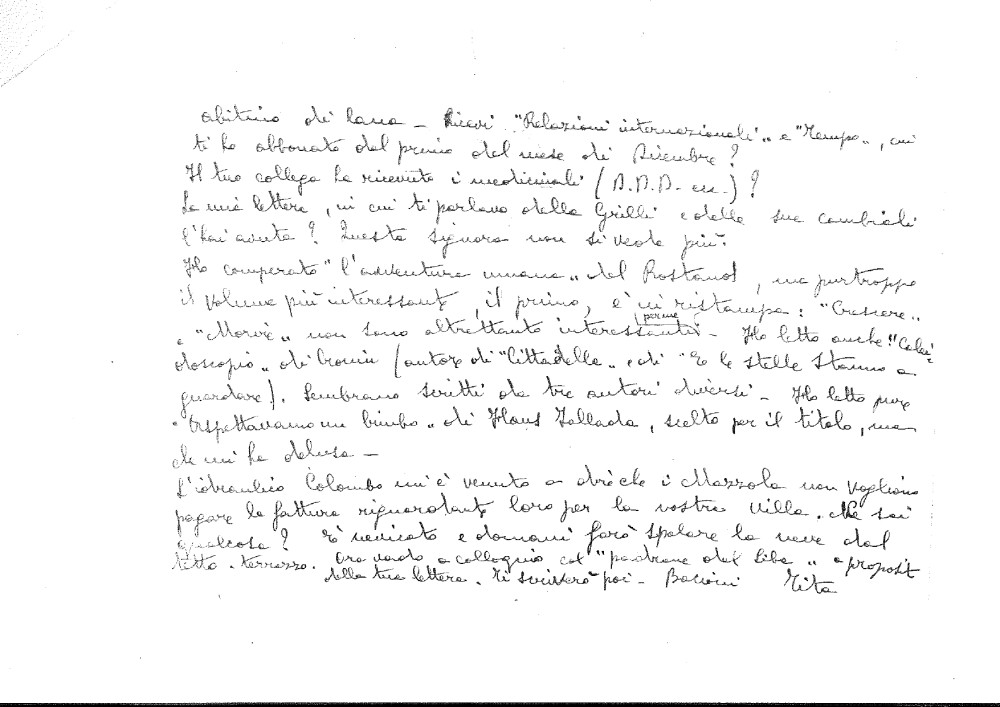 abitino di lana - Ricevi "Relazioni internazionali" e "Tempo", cui
ti ho abbonato dal primo del mese di Dicembre?
Il tuo collega ha ricevuto i medicinali (A.D.D. ecc.)?
La mia lettera, in cui ti parlavo della Grilli e delle sue cambiali
l'hai avuta? Questa signora non si vede più.
Ho comperato "l'avventura umana" del Rostand, ma purtroppo
il volume più interessante, il primo, è in ristampa: "Crescere"
e "Morire" non sono altrettanto interessanti per me - Ho letto anche "Calei-
doscopio" di Cronin (autore di "Cittadella" e di "E le stelle stanno a
guardare). Sembrano scritti da tre autori diversi - Ho letto pure
"Aspettavamo un bimbo" di Hans Fallada, scelto per il titolo, ma
che mi ha delusa -
L'idraulico Colombo mi è venuto a dire che i Mazzola non vogliono
pagare la fattura riguardante loro per la vostra villa. Ne sai
qualcosa? È nevicato e domani farò spalare la neve dal
tetto - terrazzo. Ora vado a colloquio col "padrone del Siba" a proposit
della tua lettera. Ti scriverò poi - Bacioni Tita